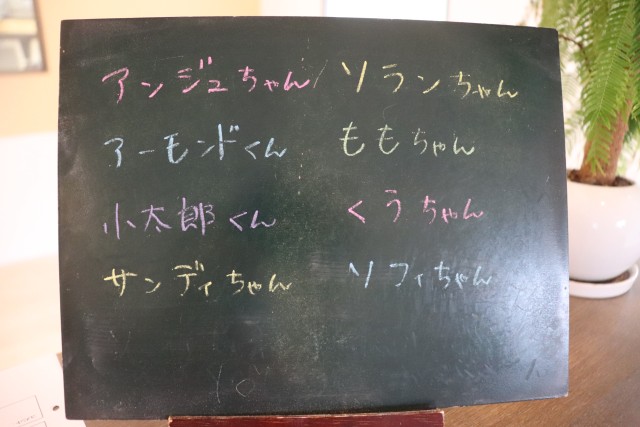 アンジュちゃん
アーモンドくん
小太郎くん
サンディちゃん
ソランちゃん
ももちゃん
くうちゃん
ソフィちゃん